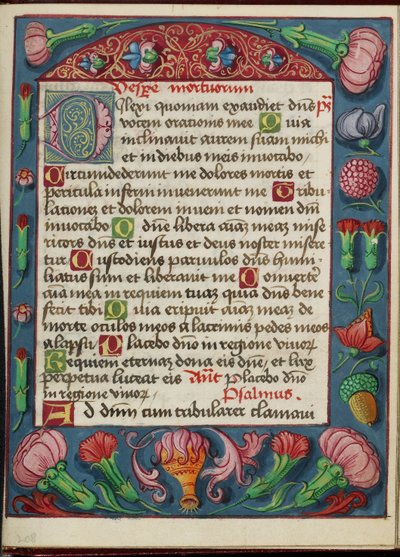 Vespe mortuorum
Dilexi quoniam exaudiet dn̄s Ps̄
vocem orationis mee Quia
inclinauit aurem suam michi
et in diebus meis inuocabo
Circumdederunt me dolores mortis et
pericula inferni inuenerunt me Tribu
lationez et dolorem inueni et nomen dn̄i
inuocabo O dn̄e libera aīaz meaz mise
ricors dn̄s et iustus et deus noster misere
tur Custodiens paruulos dn̄s humi
liatus sum et liberauit me Conuertere
aīa mea in requiem tuaz quia dn̄s bene
fecit tibi Quia eripuit aīaz meaz de
morte oculos meos a lacrimis pedes meos
a lapsu Placebo dn̄o in regione viuorz
Requiem eternaz dona eis dn̄e, et lux
perpetua luceat eis Añt Placebo dn̄o
in regione viuorz Psalmus.
Ad dn̄m cum tribularer clamaui
208